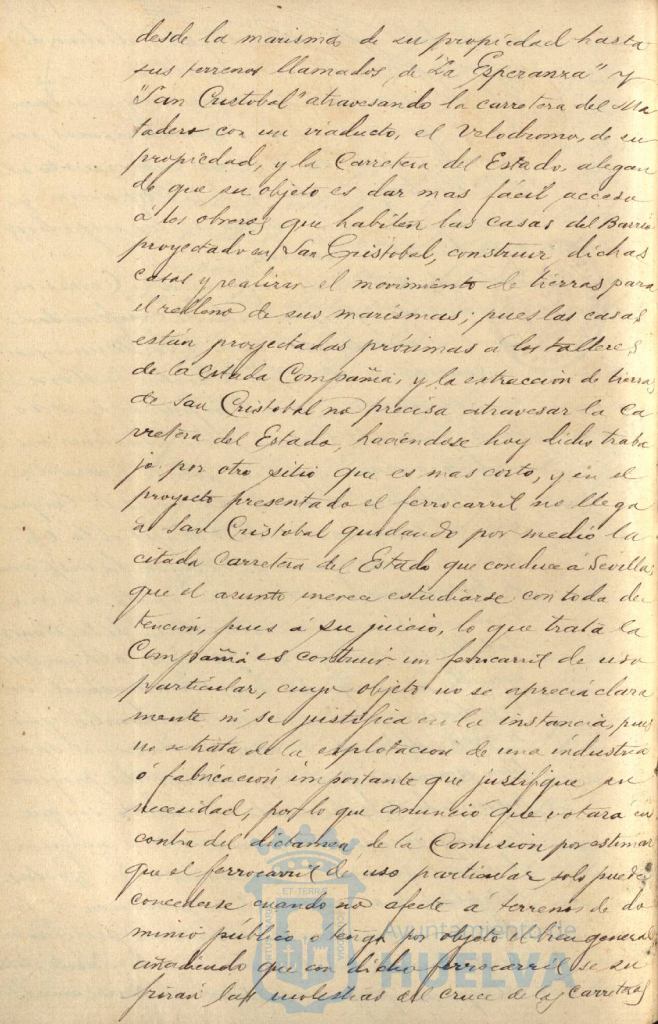 desde la marisma de su propiedad hasta
sus terrenos llamados, de "La Esperanza" y
"San Cristobal" atravesando la carretera del Ma
tadero con un viaducto, el Velodromo, de su
propiedad, y la Carretera del Estado, alegan
do que su objeto es dar mas fácil acceso
á los obreros que habiten las casas del Barrio
proyectado en San Cristobal, construir dichas
casas y realizar el movimiento de tierras para
el relleno de sus marismas; pues las casas
están proyectadas próximas á los talleres
de la citada Compañia, y la extraccion de tierras
de San Cristobal no precisa atravesar la Ca
rretera del Estado, haciéndose hoy dicho traba
jo por otro sitio que es mas corto, y en el
proyecto presentado el ferrocarril no llega
á San Cristobal quedando por medio la
citada Carretera del Estado que conduce á Sevilla;
que el asunto merece estudiarse con toda de
tencion, pues á su juicio, lo que trata la
Compañia es construir un ferrocarril de uso
particular, cuyo objeto no se aprecia clara
mente ni se justifica en la instancia, pues
no se trata de la explotacion de una industria
ó fabricacion importante que justifique su
necesidad, por lo que anunció que votará en
contra del dictamen de la Comision por estimar
que el ferrocarril de uso particular solo puede
concederse cuando no afecte á terrenos de do
minio público ó tenga por objeto el bien general
añadiendo que con dicho ferrocarril se su
frirán las molestias del cruce de las Carreteras
Ayuntamiento de
HUELVA